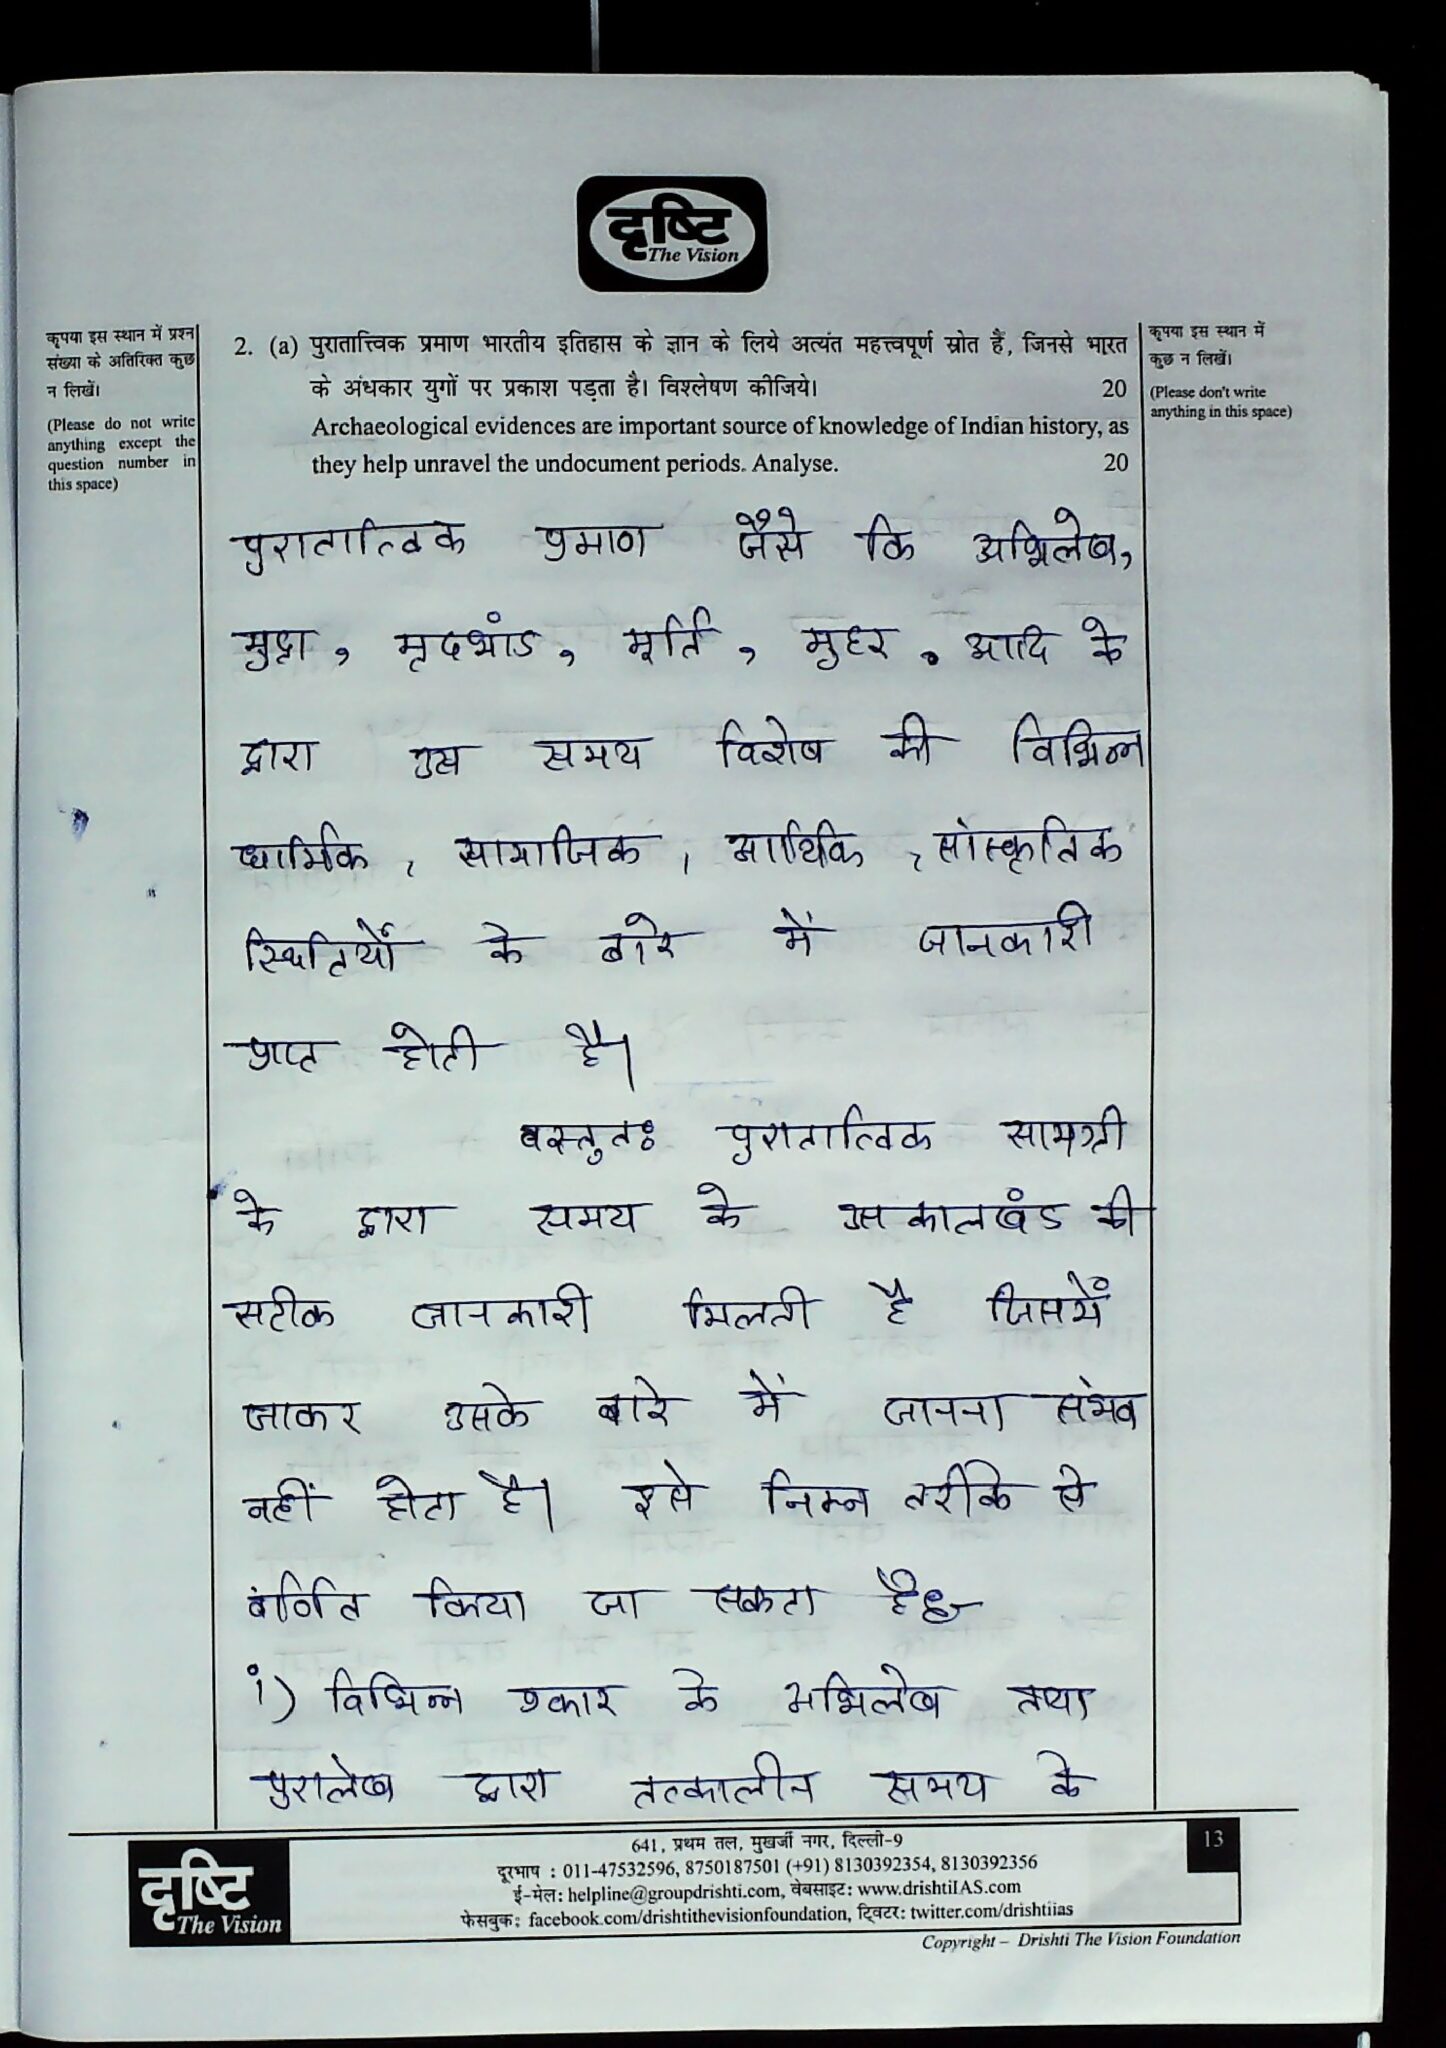 दृष्टि
The Vision
कृपया इस स्थान में प्रश्न
संख्या के अतिरिक्त कुछ
न लिखें।
(Please do not write
anything except the
question number in
this space)
2. (a) पुरातात्त्विक प्रमाण भारतीय इतिहास के ज्ञान के लिये अत्यंत महत्त्वपूर्ण स्रोत हैं, जिनसे भारत
के अंधकार युगों पर प्रकाश पड़ता है। विश्लेषण कीजिये। 20
Archaeological evidences are important source of knowledge of Indian history, as
they help unravel the undocument periods. Analyse. 20
कृपया इस स्थान में
कुछ न लिखें।
(Please don't write
anything in this space)
पुरातात्विक प्रमाण जैसे कि अभिलेख,
मुद्रा, मृदभांड, मूर्ति, मुहर, आदि के
द्वारा उस समय विशेष की विभिन्न
धार्मिक, सामाजिक, आर्थिक, सांस्कृतिक
स्थितियों के बारे में जानकारी
प्राप्त होती है।
वस्तुतः पुरातात्विक सामग्री
के द्वारा समय के उस कालखंड की
सटीक जानकारी मिलती है जिसमें
जाकर उसके बारे में जानना संभव
नहीं होता है। इसे निम्न तरीके से
वर्णित किया जा सकता है:-
i) विभिन्न प्रकार के अभिलेख तथा
पुरालेख द्वारा तत्कालीन समय के
दृष्टि
The Vision
641, प्रथम तल, मुखर्जी नगर, दिल्ली-9
दूरभाष : 011-47532596, 8750187501 (+91) 8130392354, 8130392356
ई-मेल: helpline@groupdrishti.com, वेबसाइट: www.drishtiIAS.com
फेसबुक: facebook.com/drishtithevisionfoundation, ट्विटर: twitter.com/drishtiias
13
Copyright – Drishti The Vision Foundation